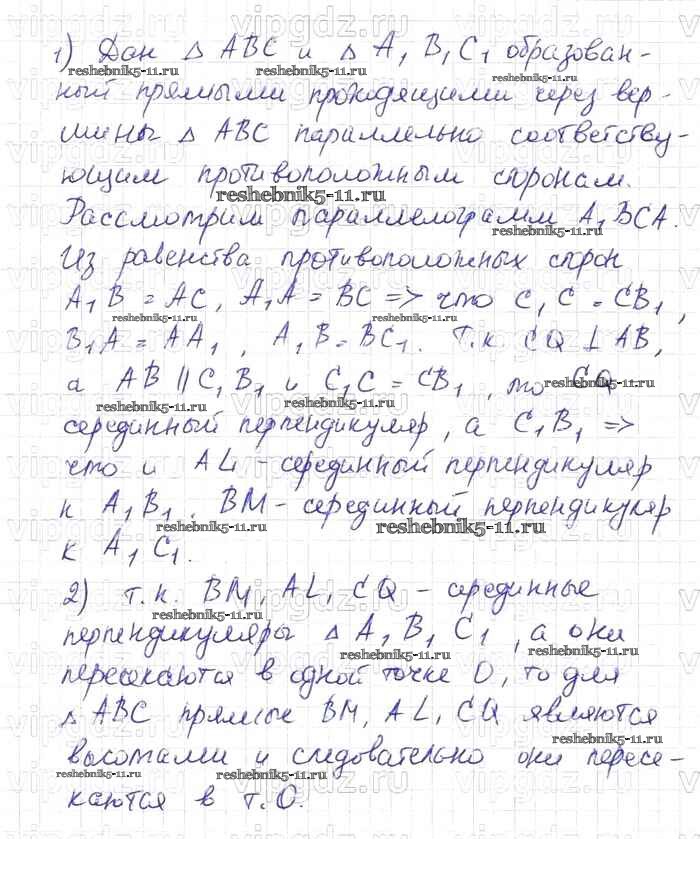 1) Дан △ ABC и △ A₁B₁C₁ образован-
ный прямыми проходящими через вер-
шины △ ABC параллельно соответству-
ющим противоположным сторонам.
Рассмотрим параллелограмм A₁BCA.
Из равенства противоположных сторон
A₁B = AC, A₁A = BC => что C₁C = CB₁,
B₁A = AA₁, A₁B = BC₁. Т.к. CQ ⊥ AB,
а AB || C₁B₁ и C₁C = CB₁, то CQ
серединный перпендикуляр, а C₁B₁ =>
что и AL - серединный перпендикуляр
к A₁B₁. BM - серединный перпендикуляр
к A₁C₁.
2) т.к. BM, AL, CQ - серединные
перпендикуляры △ A₁B₁C₁, а они
пересекаются в одной точке O, то для
△ ABC прямые BM, AL, CQ являются
высотами и следовательно они пересе-
каются в т.O.
reshebnik5-11.ru
vipgdz.ru